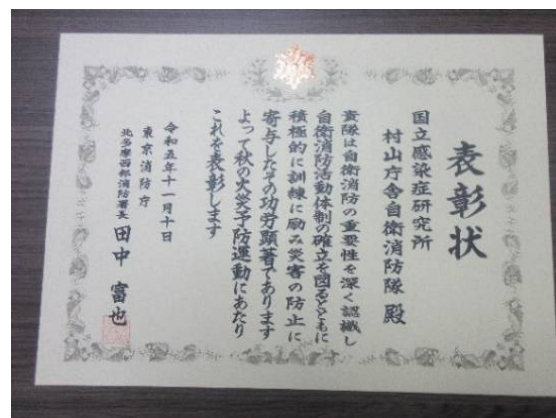 表彰状
国立感染症研究所
村山庁舎自衛消防隊 殿
貴隊は自衛消防の重要性を深く認識し
自衛消防活動体制の確立を図るとともに
積極的に訓練に励み災害の防止に
寄与したその功労顕著であります
よって秋の火災予防運動にあたり
これを表彰します
令和五年十一月十日
東京消防庁
北多摩西部消防署長 田中 富也